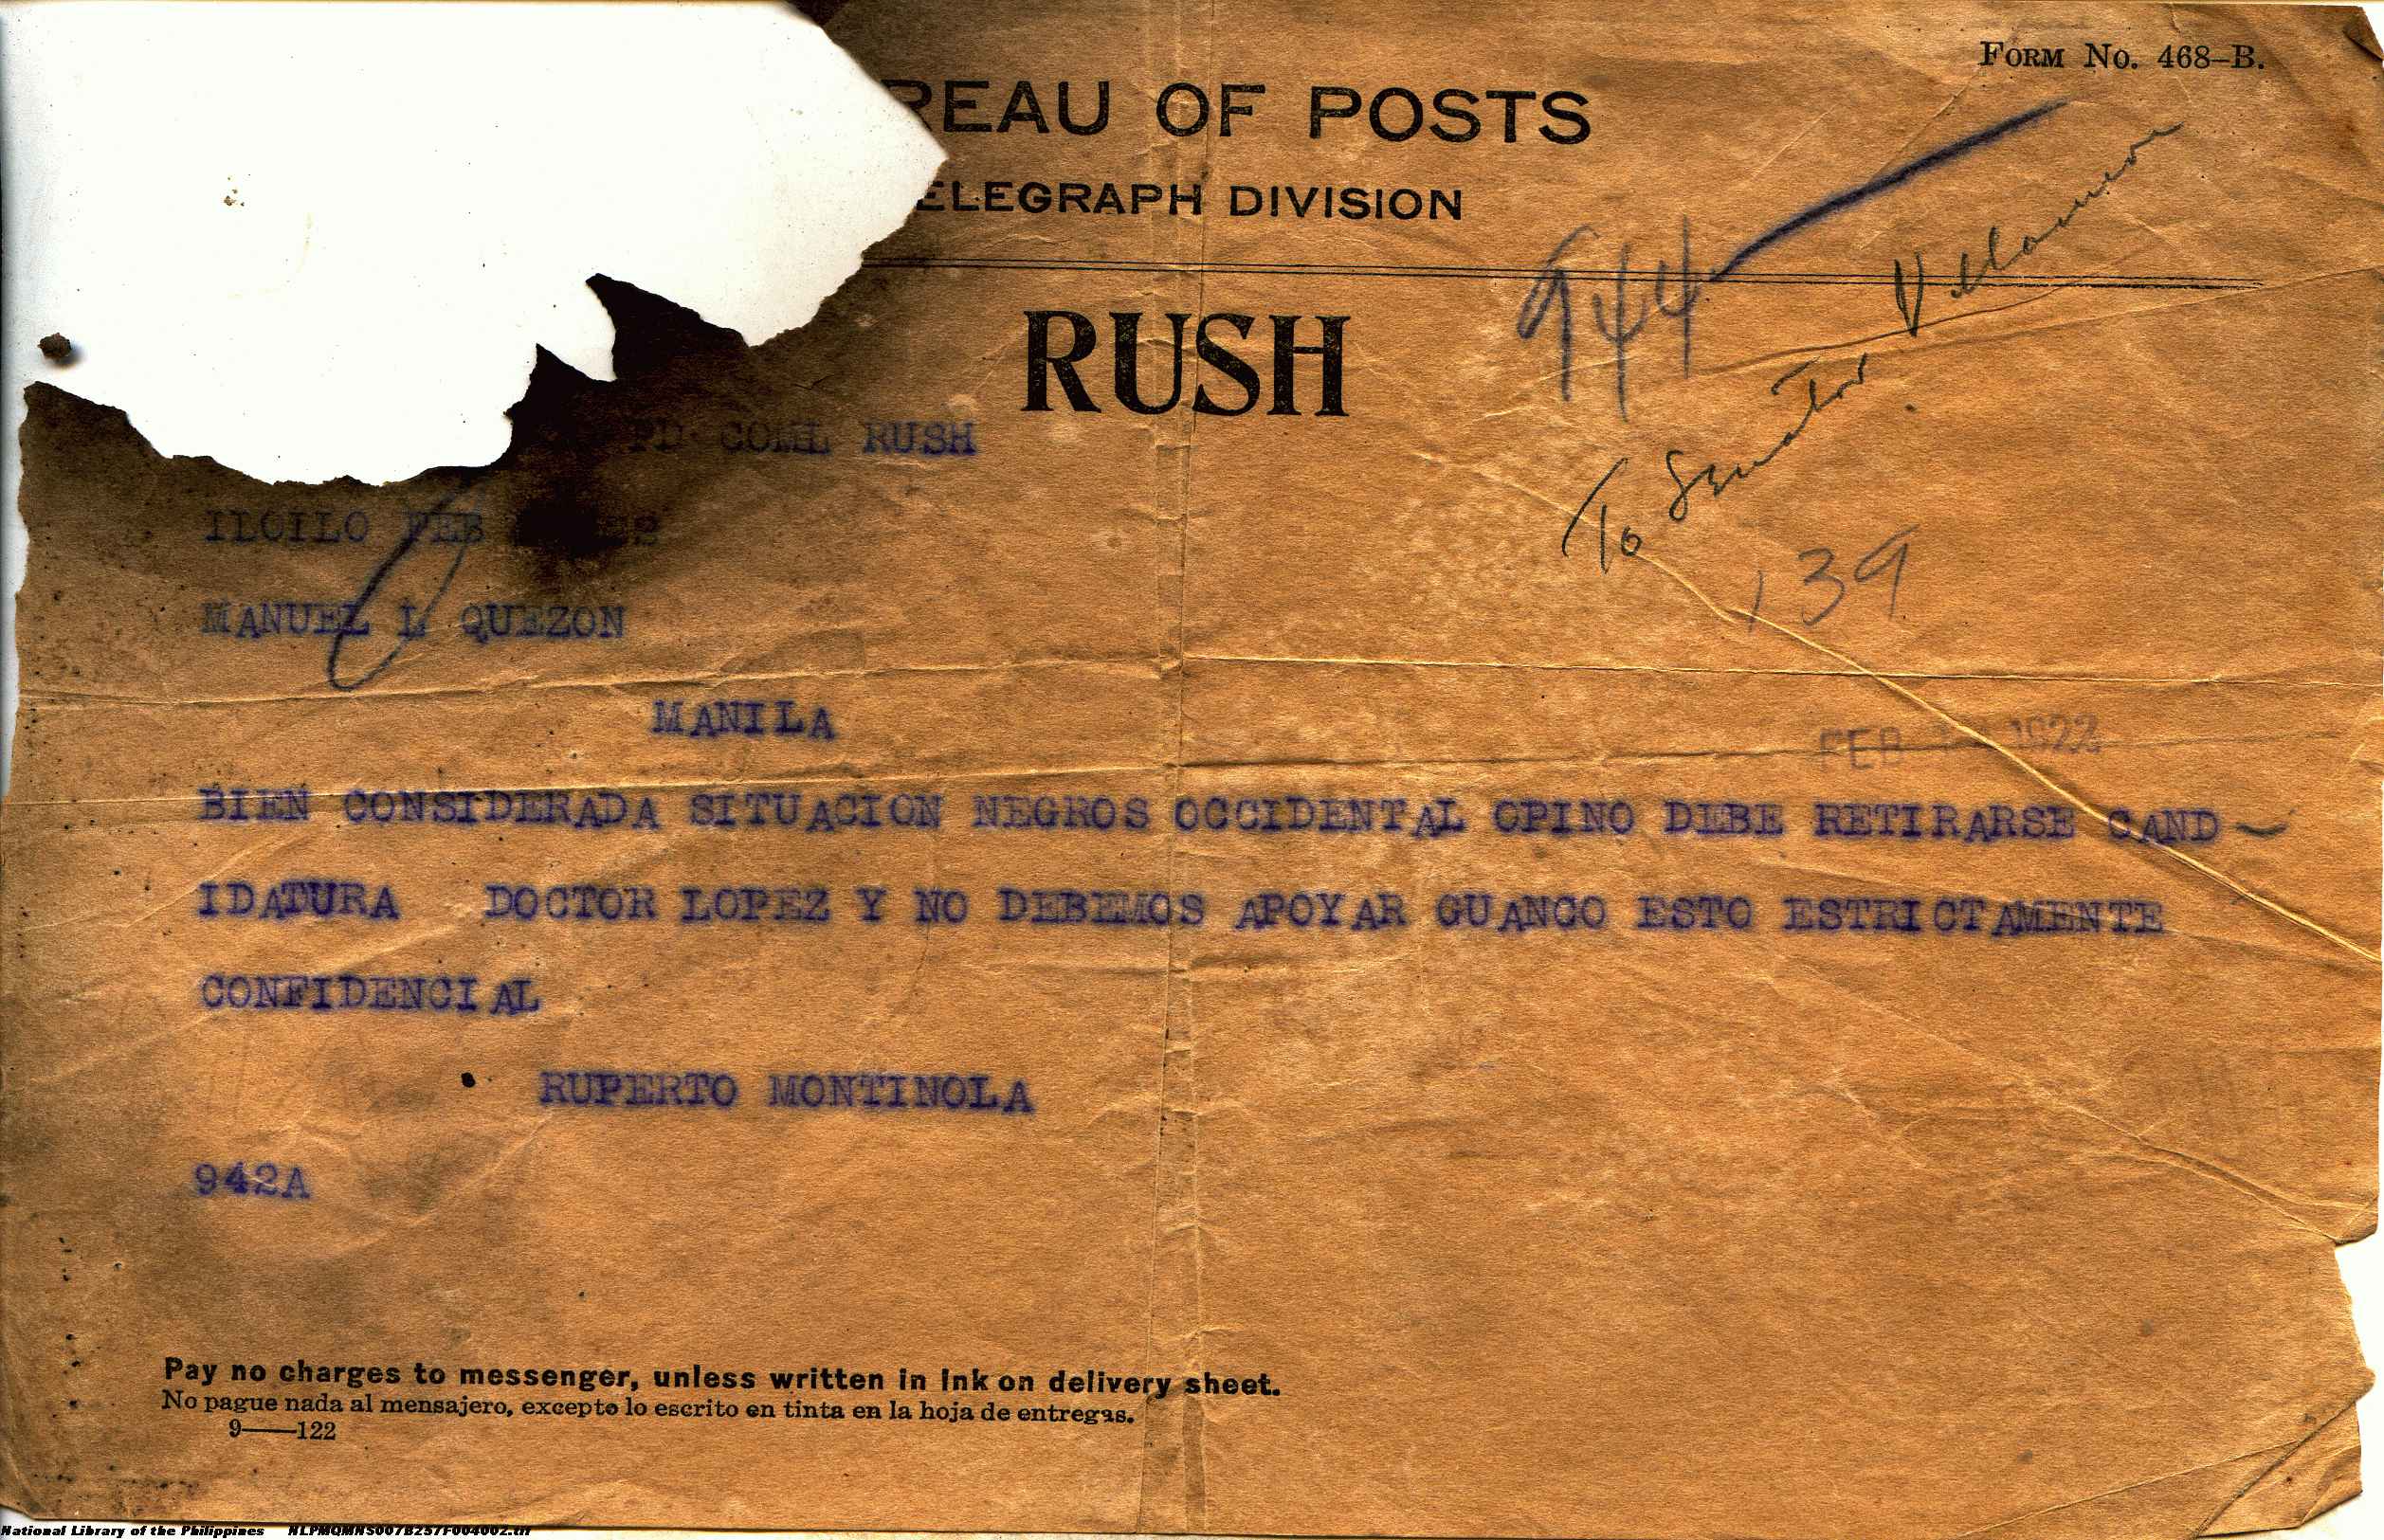 FORM NO. 468-B.
REAU OF POSTS
ELEGRAPH DIVISION
944
To Senator Villamor
RUSH
PD COML RUSH
ILOILO FEB
139
MANUEL L QUEZON
MANILA
FEB 1922
BIEN CONSIDERADA SITUACION NEGROS OCCIDENTAL OPINO DEBE RETIRARSE CAND-
IDATURA DOCTOR LOPEZ Y NO DEBEMOS APOYAR GUANCO ESTO ESTRICTAMENTE
CONFIDENCIAL
RUPERTO MONTINOLA
942A
Pay no charges to messenger, unless written in ink on delivery sheet.
No pague nada al mensajero, excepto lo escrito en tinta en la hoja de entregas.
9——122
National Library of the Philippines NLPMQMNS007B257F004002.tif